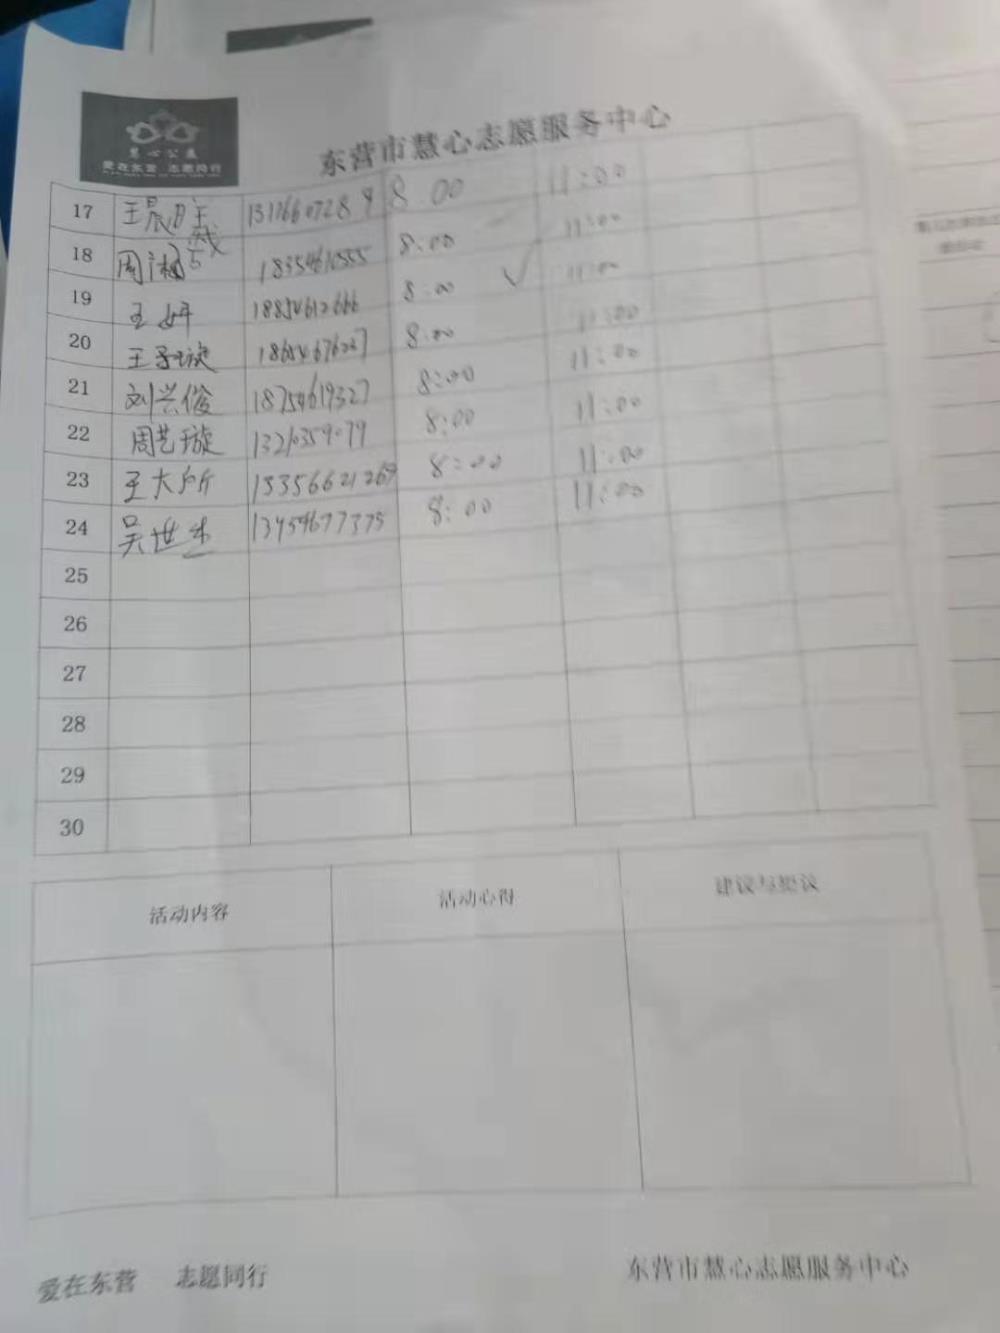 慧心公益
爱在东营 志愿同行
东营市慧心志愿服务中心
17 王晨 8:00 11:00
18 周湘 18354610555 8:00 11:00
19 王妍 18854612666 8:00 11:00
20 王子璇 8:00 11:00
21 刘兴俊 18754619327 8:00 11:00
22 周艺璇 8:00 11:00
23 王大所 8:00 11:00
24 吴世杰 8:00 11:00
25
26
27
28
29
30
活动内容 活动心得 建议与提议
爱在东营 志愿同行 东营市慧心志愿服务中心